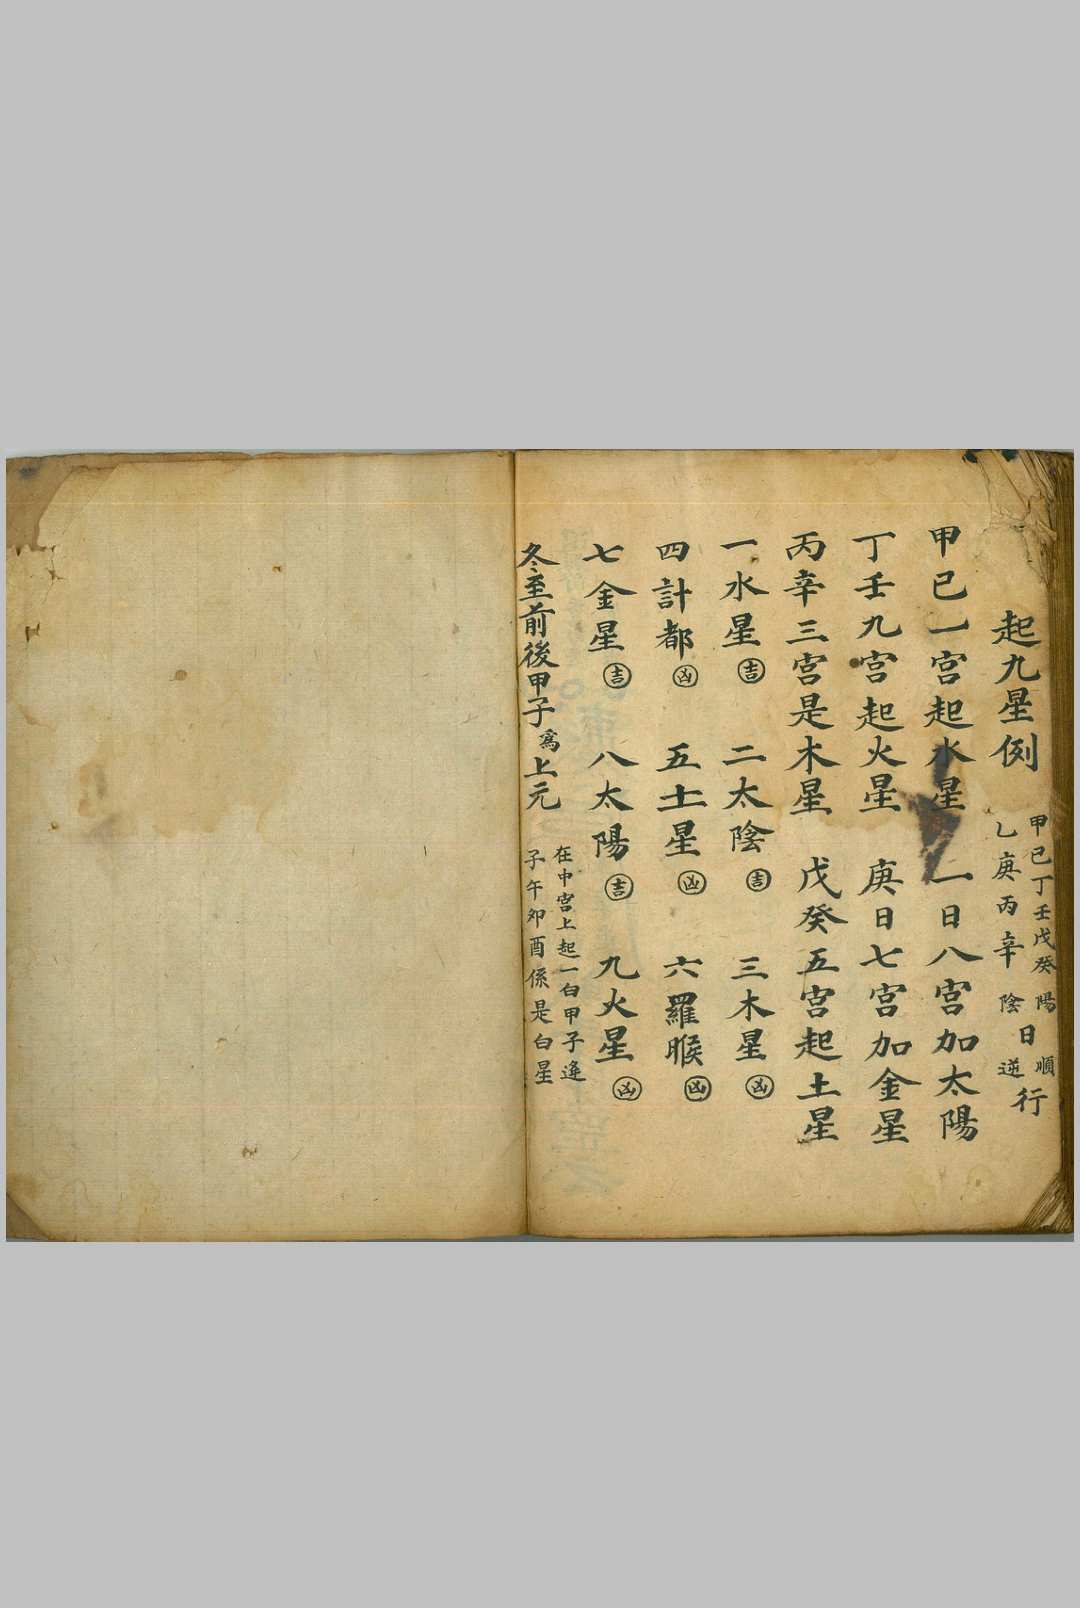 起九星例
甲己丁壬戊癸陽
乙庚丙辛陰
日
順
逆
行
甲己一宮起水星 一日八宮加太陽
丁壬九宮起火星 庚日七宮加金星
丙辛三宮是木星 戊癸五宮起土星
一水星吉 二太陰吉 三木星凶
四計都凶 五土星凶 六羅睺凶
七金星吉 八太陽吉 九火星凶
冬至前後甲子為上元
在中宮上起一白甲子逆
子午卯酉係是白星